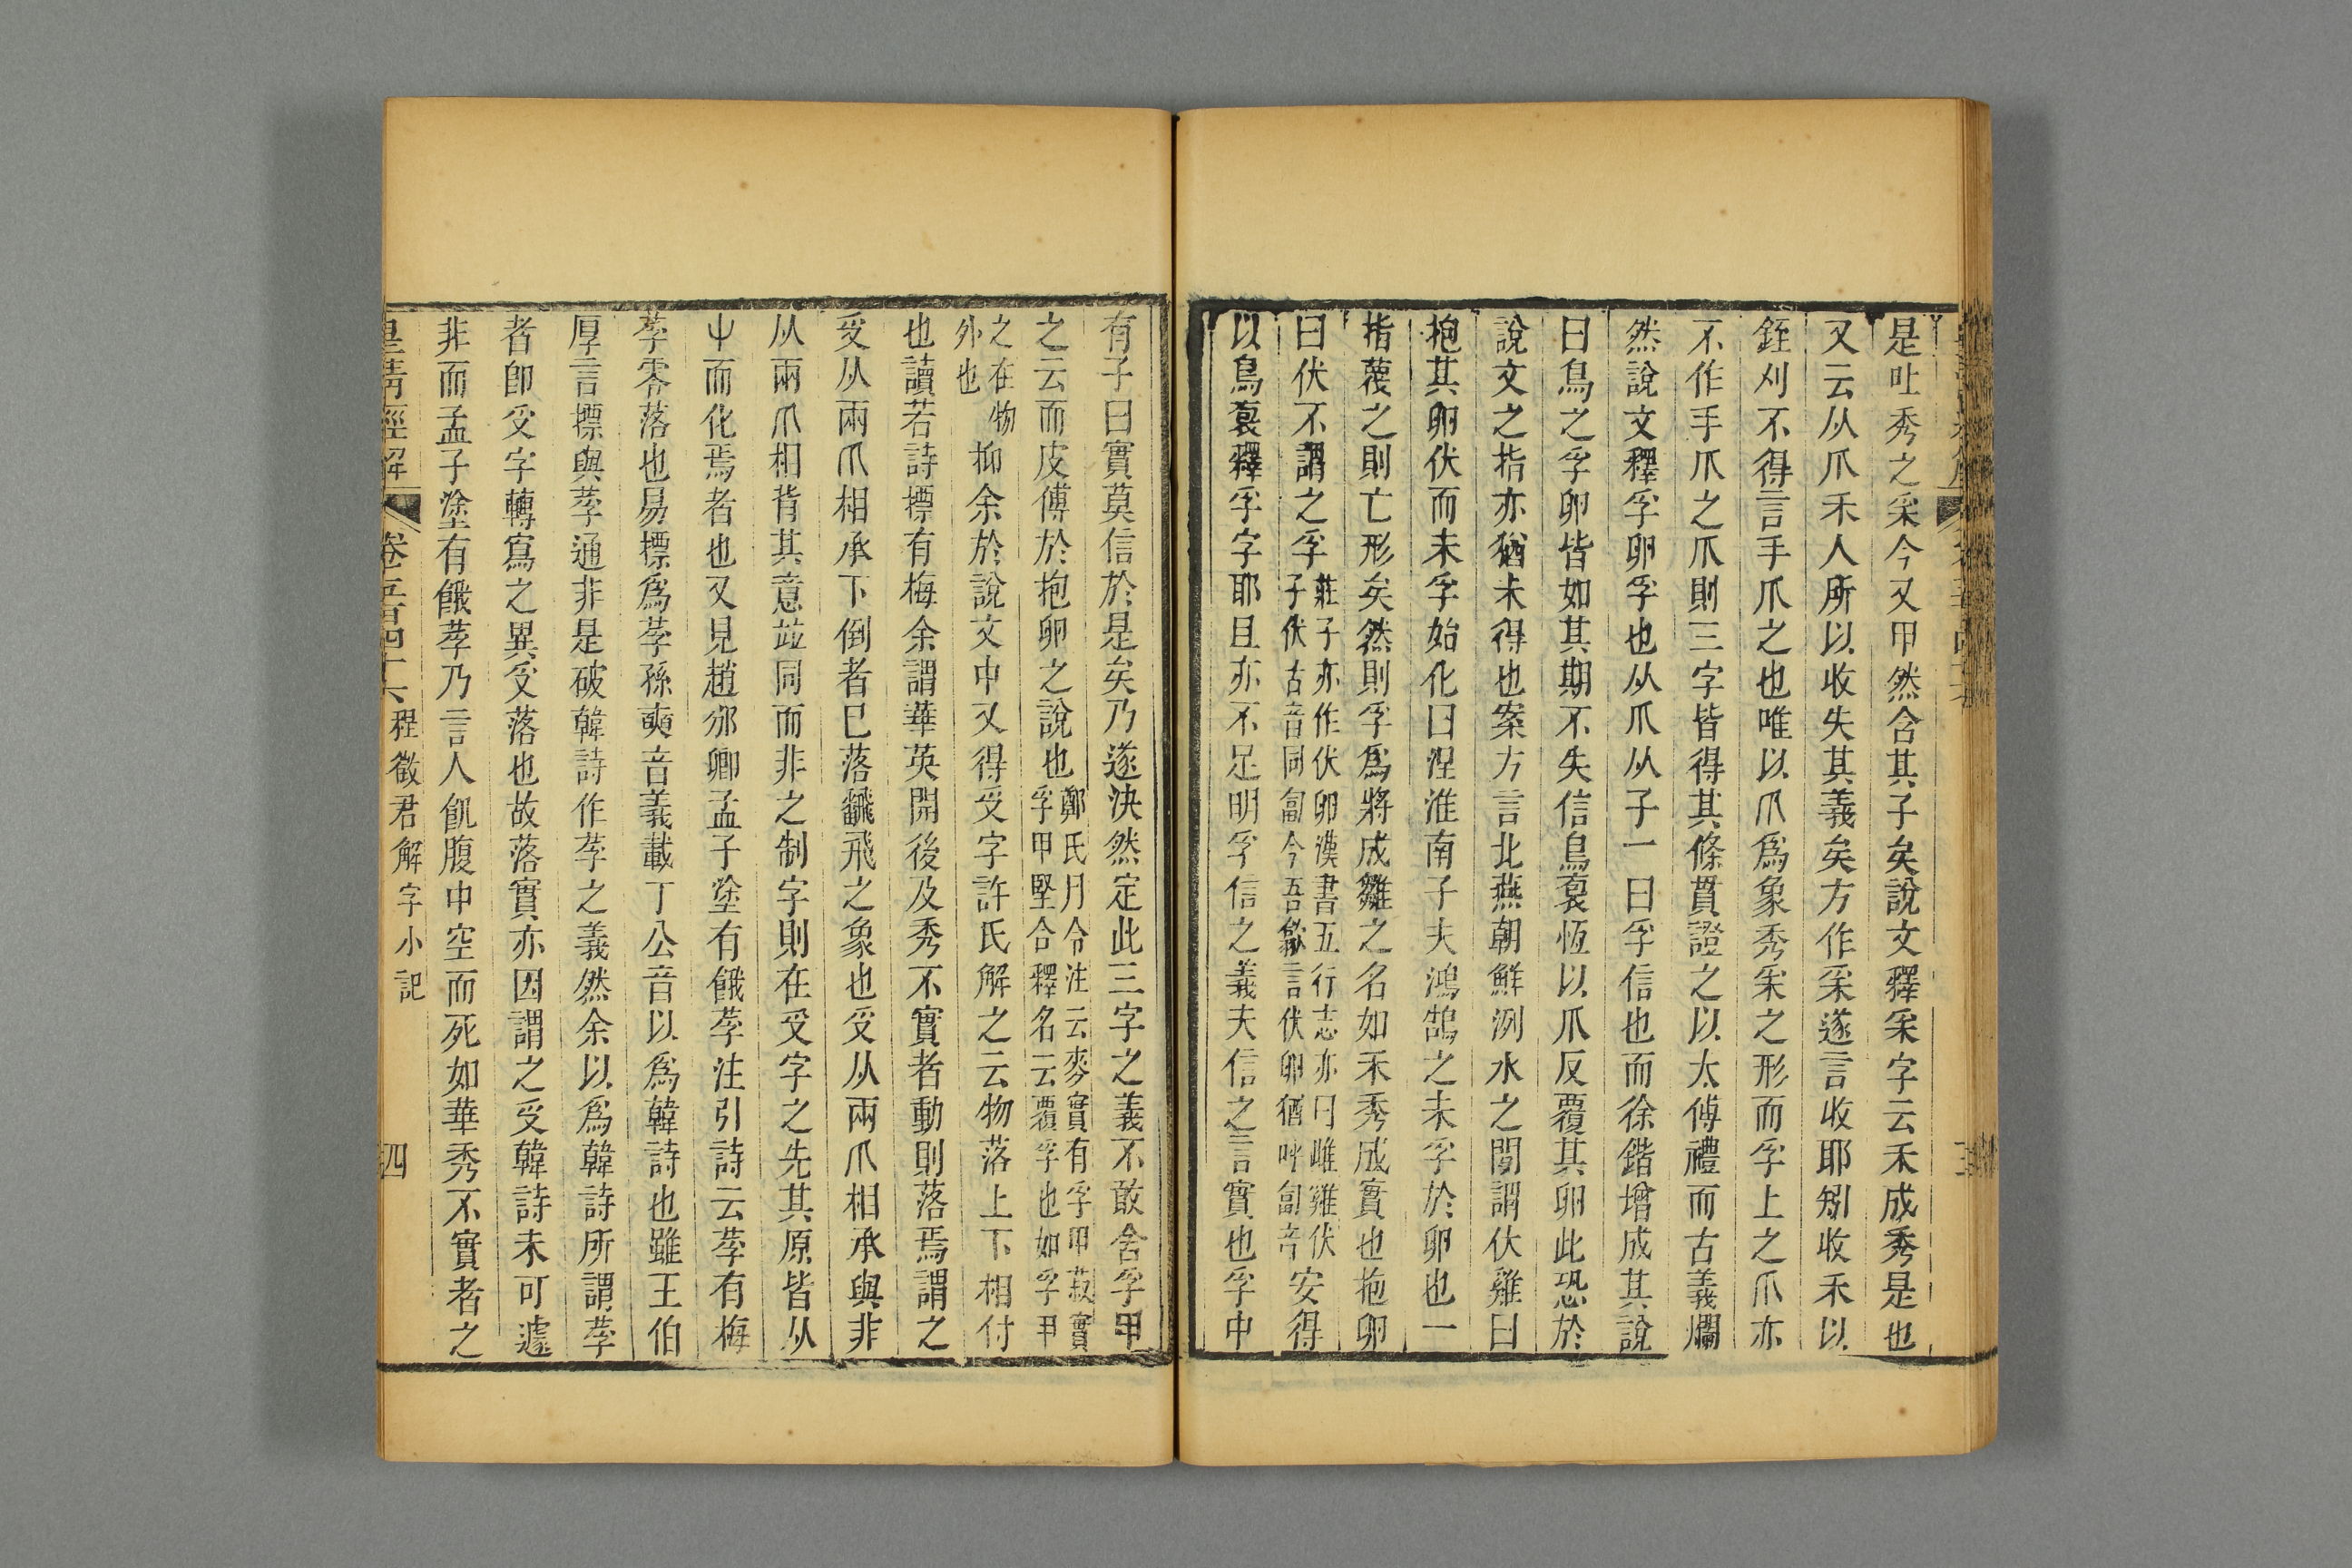 是吐秀之采今又甲然含其子矣說文釋采字云禾成秀是也
又云从爪禾人所以收失其義矣方作采遂言收耶矧收禾以
銍刈不得言手爪之也唯以爪爲象秀采之形而孚上之爪亦
不作手爪之爪則三字皆得其條貫證之以太傅禮而古義爛
然說文釋孚卵孚也从爪从子一曰孚信也而徐鍇增成其說
曰鳥之孚卵皆如其期不失信鳥裒恆以爪反覆其卵此恐於
說文之指亦猶未得也案方言北燕朝鮮洌水之閒謂伏雞曰
抱其卵伏而未孚始化曰涅淮南子夫鴻鵠之未孚於卵也一
指蔑之則亡形矣然則孚爲將成雛之名如禾秀成實也抱卵
曰伏不謂之孚莊子亦作伏卵漢書五行志亦曰雌雞伏子伏古音同匐今吾歙言伏卵猶呼匐音安得
以鳥裒釋孚字耶且亦不足明孚信之義夫信之言實也孚中
有子曰實莫信於是矣乃遂決然定此三字之義不敢舍孚甲
之云而皮傅於抱卵之說也鄭氏月令注云麥實有孚甲菽實孚甲堅合釋名云覆孚也如孚甲
之在物外也抑余於說文中又得𠬪字許氏解之云物落上下相付
也讀若詩摽有梅余謂華英開後及秀不實者動則落焉謂之
𠬪从兩爪相承下倒者已落飜飛之象也𠬪从兩爪相承與非
从兩爪相背其意竝同而非之制字則在𠬪字之先其原皆从
屮而化焉者也又見趙邠卿孟子塗有餓莩注引詩云莩有梅
莩零落也易摽爲莩孫奭音義載丁公音以爲韓詩也雖王伯
厚言摽與莩通非是破韓詩作莩之義然余以爲韓詩所謂莩
者卽𠬪字轉寫之異𠬪落也故落實亦因謂之𠬪韓詩未可遽
非而孟子塗有餓莩乃言人飢腹中空而死如華秀不實者之
皇淸經解 卷五百四十六 程徵君解字小記 四